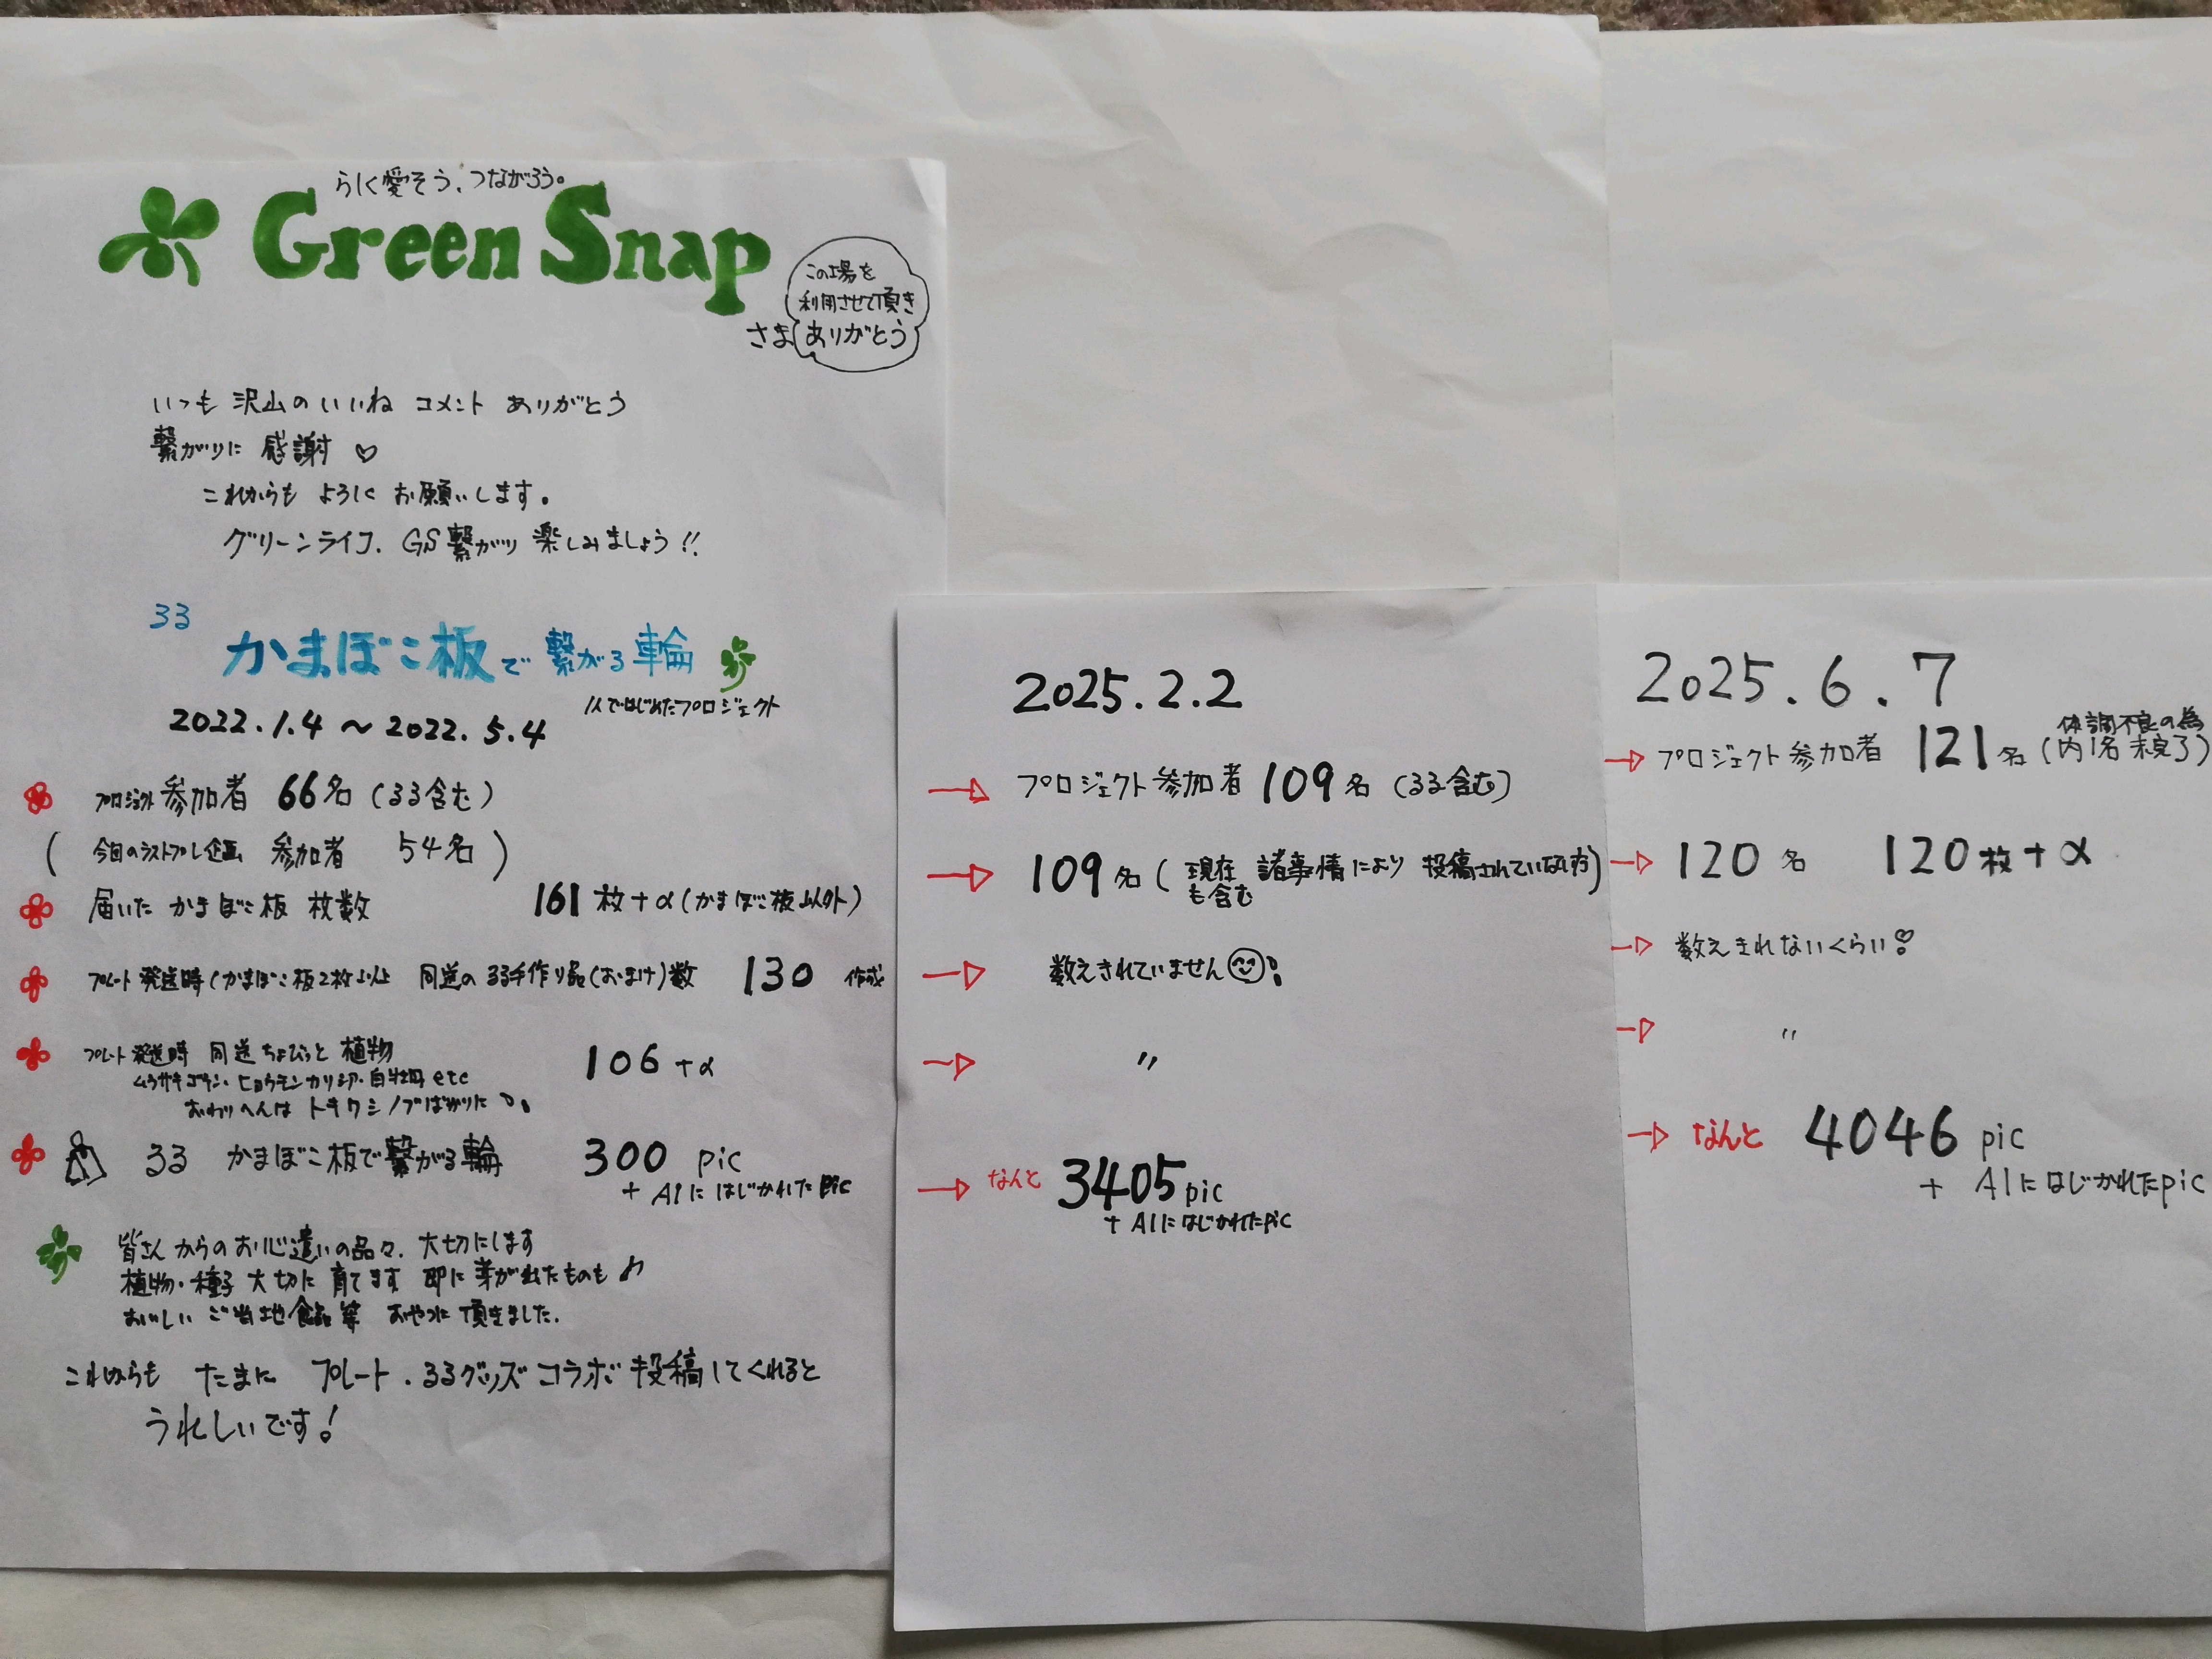 らしく愛そう、つながろう。
Green Snap
さま
この場を
利用させて頂き
ありがとう
いつも 沢山の いいね コメント ありがとう
繋がりに 感謝 ♡
これからも よろしく お願いします。
グリーンライフ、GS繋がり 楽しみましょう!!
るる
かまぼこ板で 繋がる輪
1人ではじめたプロジェクト
2022.1.4 〜 2022.5.4
プロジェクト 参加者 66名 (るる含む)
( 今回のラストプレ企画 参加者 54名 )
届いた かまぼこ板 枚数 161 枚 + α (かまぼこ板以外)
プレート 発送時 (かまぼこ板2枚以上 同送の るる手作り品(おまけ)数 130 作成
プレート 発送時 同送 ちょびっと 植物 106 + α
ムラサキゴテン・ヒョウモンカリシア・白牡丹 etc
おわりへんは トキワシノブばかりに
るる かまぼこ板で繋がる輪 300 pic
+ AIに はじかれた pic
皆さん からの お心遣いの品々、大切にします
植物・種子 大切に 育てます 即に 芽が出たものも ♪
おいしい ご当地 食品 等 おやつに 頂きました。
これからも たまに プレート・るるグッズ コラボ 投稿してくれると
うれしいです!
2025.2.2
→ プロジェクト 参加者 109 名 (るる含む)
→ 109 名 ( 現在 諸事情により 投稿されていない方)
も含む
→ 数えきれていません
→ 〃
→ なんと 3405 pic
+ AIに はじかれたpic
2025.6.7
体調不良の為
→ プロジェクト 参加者 121 名 (内1名 未完了)
→ 120 名 120 枚 + α
→ 数えきれないくらい
→ 〃
→ なんと 4046 pic
+ AIに はじかれたpic